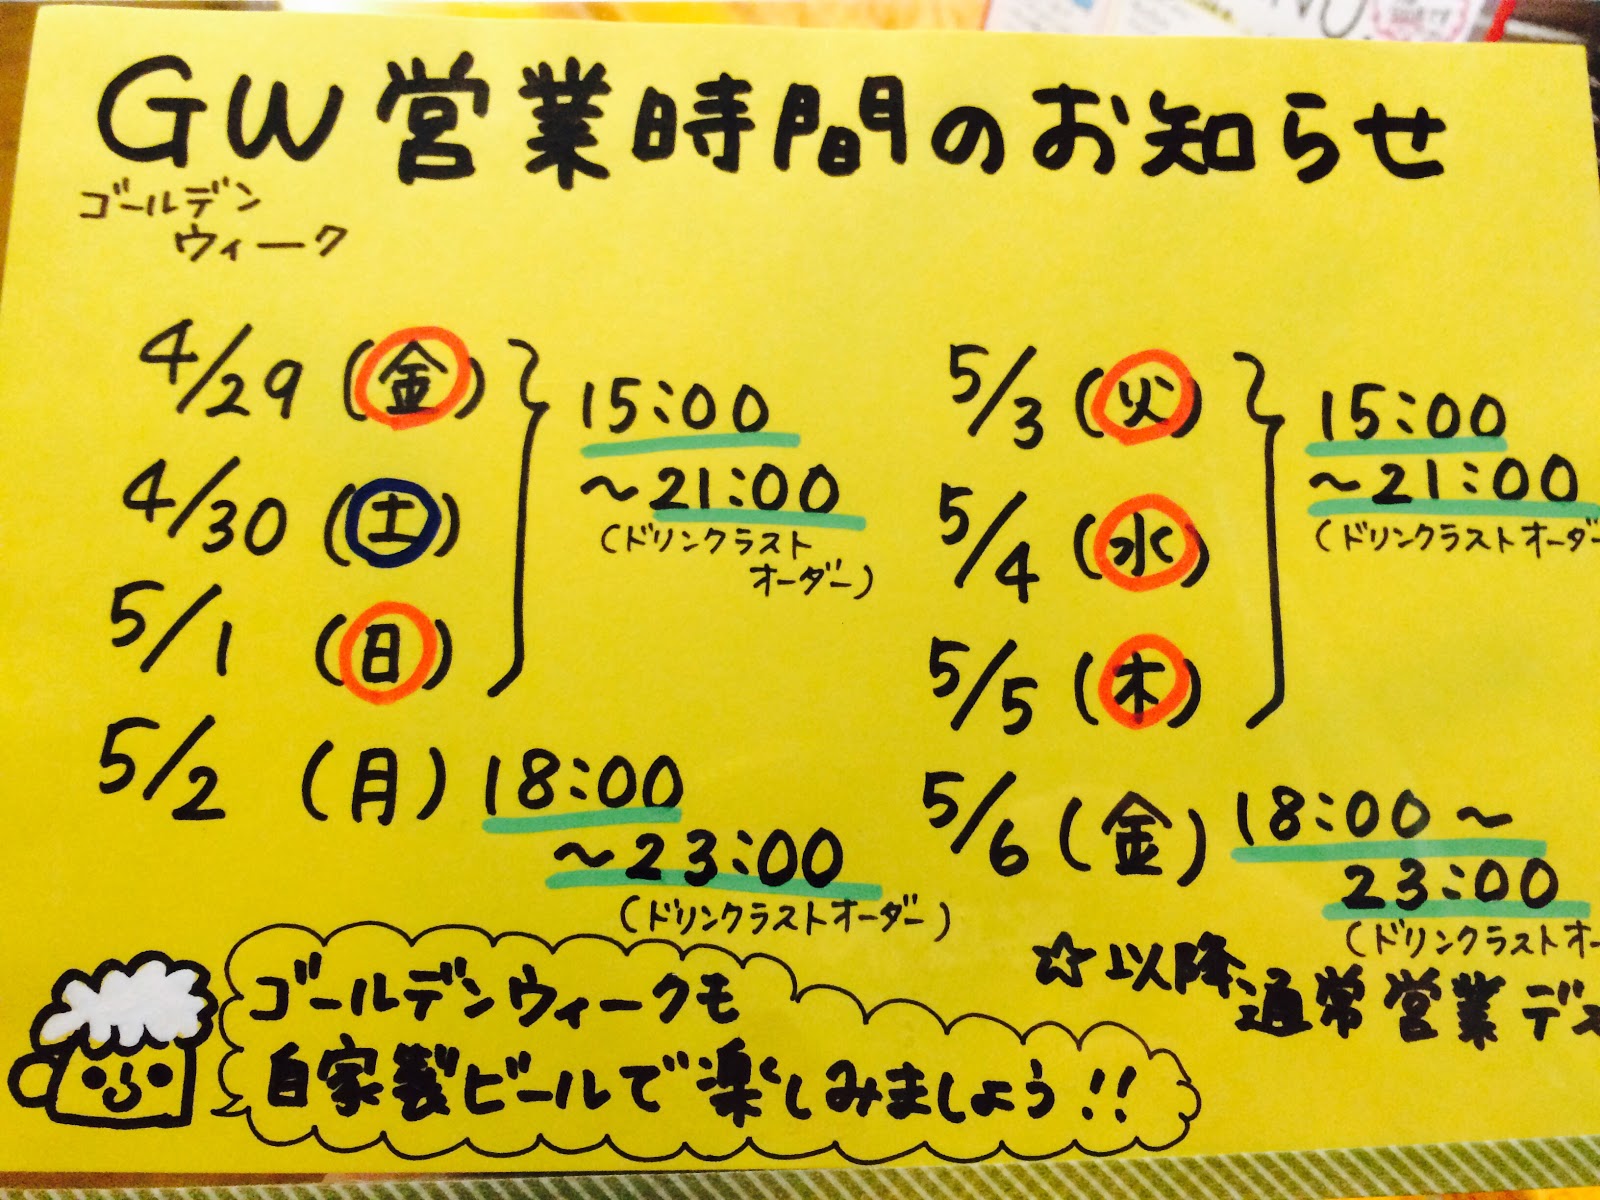 GW営業時間のお知らせ
ゴールデン
ウィーク
4/29 (金)
4/30 (土)
5/1 (日)
15:00
～21:00
(ドリンクラスト
オーダー)
5/2 (月) 18:00
～23:00
(ドリンクラストオーダー)
5/3 (火)
5/4 (水)
5/5 (木)
15:00
～21:00
(ドリンクラストオーダー
5/6 (金) 18:00～
23:00
(ドリンクラストオー
☆以降、
通常営業デス
ゴールデンウィークも
自家製ビールで楽しみましょう!!